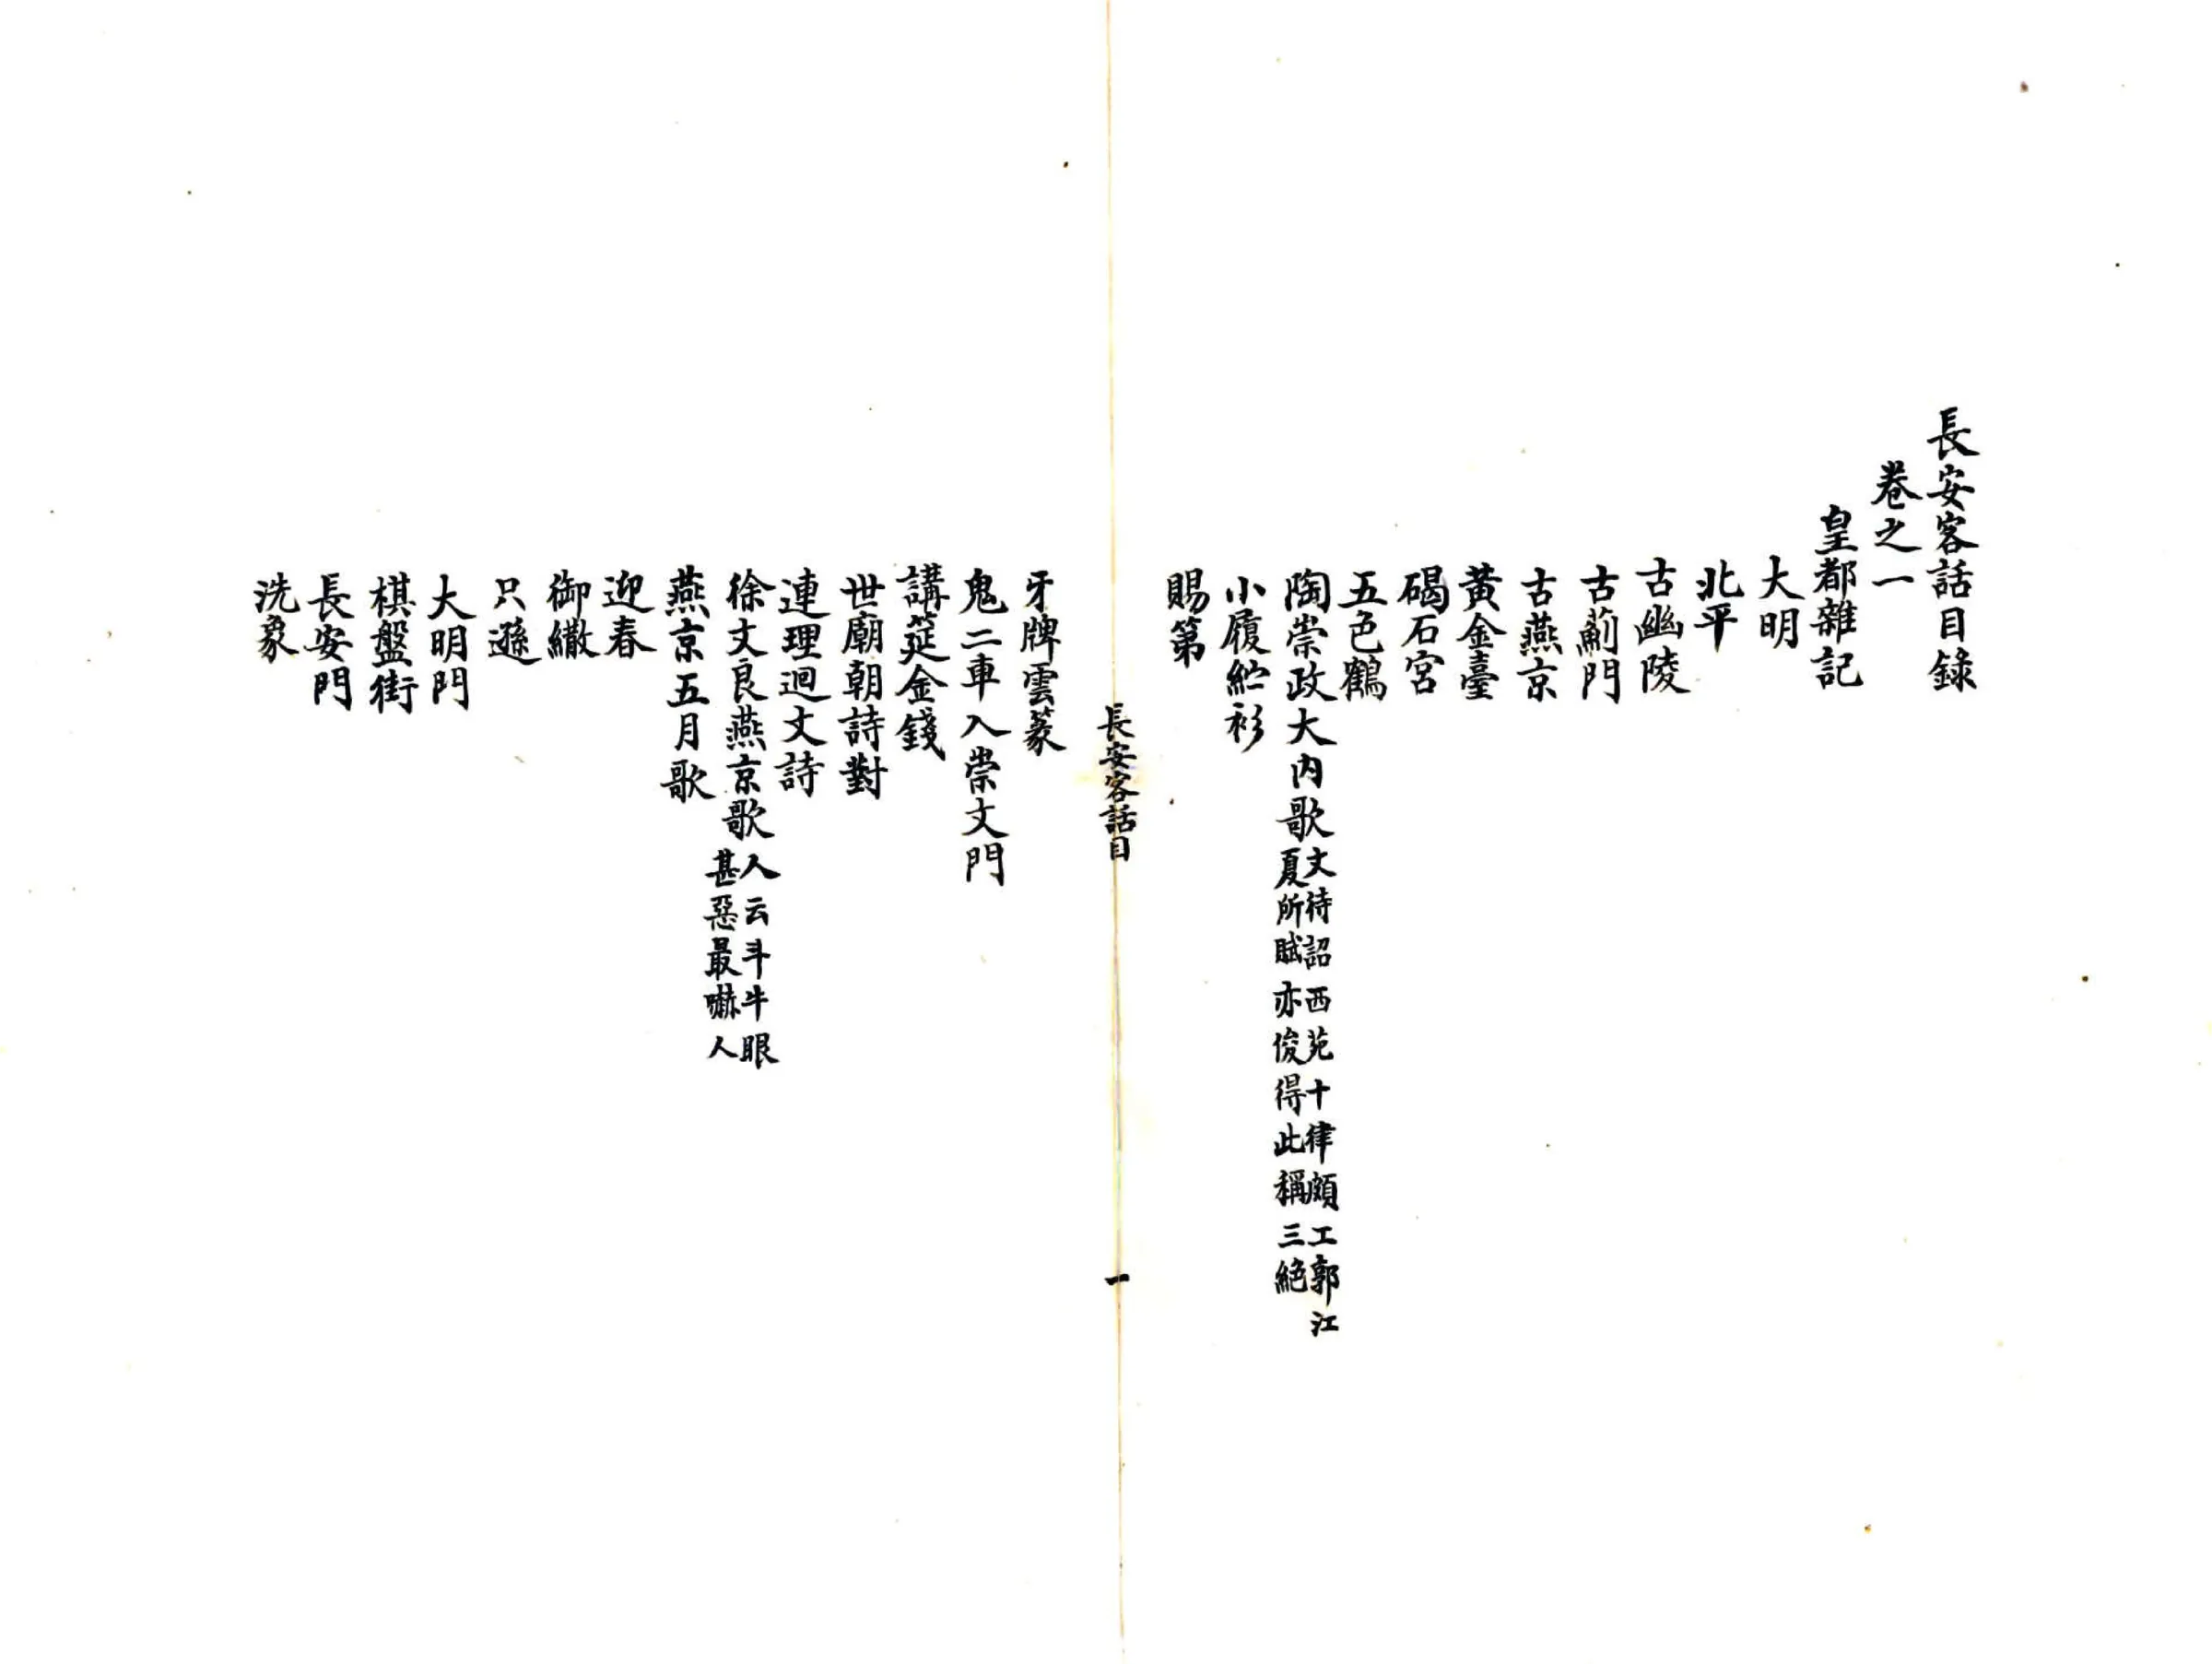 長安客話目錄
卷之一
皇都雜記
大明
北平
古幽陵
古薊門
古燕京
黃金臺
碣石宮
五色鶴
陶崇政大內歌文待詔西苑十律頗工郭江
夏所賦亦俊得此稱三絕
小履紵衫
賜第
長安客話目
一
牙牌雲篆
鬼二車入崇文門
講筵金錢
世廟朝詩對
連理迴文詩
徐文良燕京歌人云斗牛眼
甚惡最嚇人
燕京五月歌
迎春
御繖
只遜
大明門
棋盤街
長安門
洗象